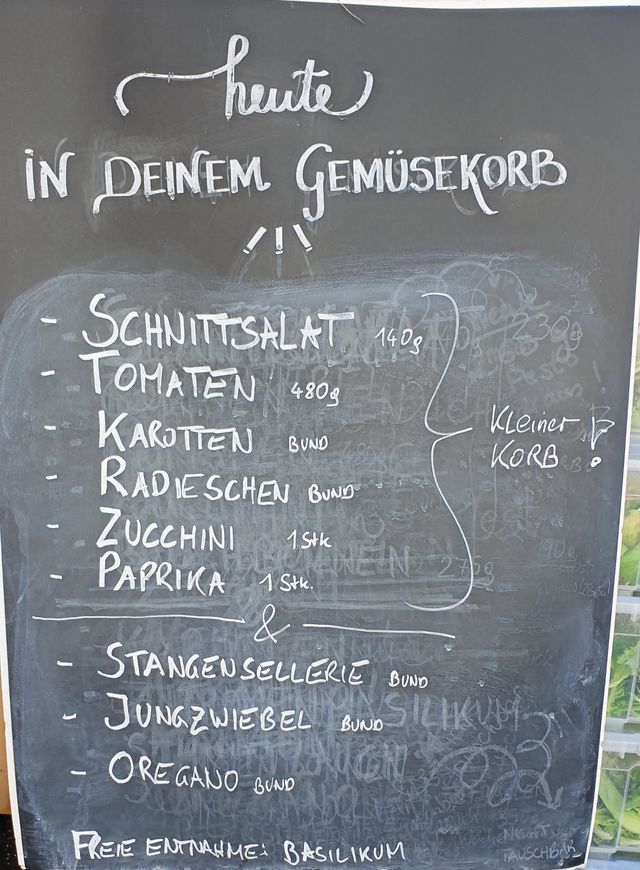 heute
IN DEINEM GEMÜSEKORB
- SCHNITTSALAT 140g
- TOMATEN 480g
- KAROTTEN BUND
- RADIESCHEN BUND
- ZUCCHINI 1 Stk
- PAPRIKA 1 Stk.
KLEINER
KORB !
&
- STANGENSELLERIE BUND
- JUNGZWIEBEL BUND
- OREGANO BUND
FREIE ENTNAHME: BASILIKUM